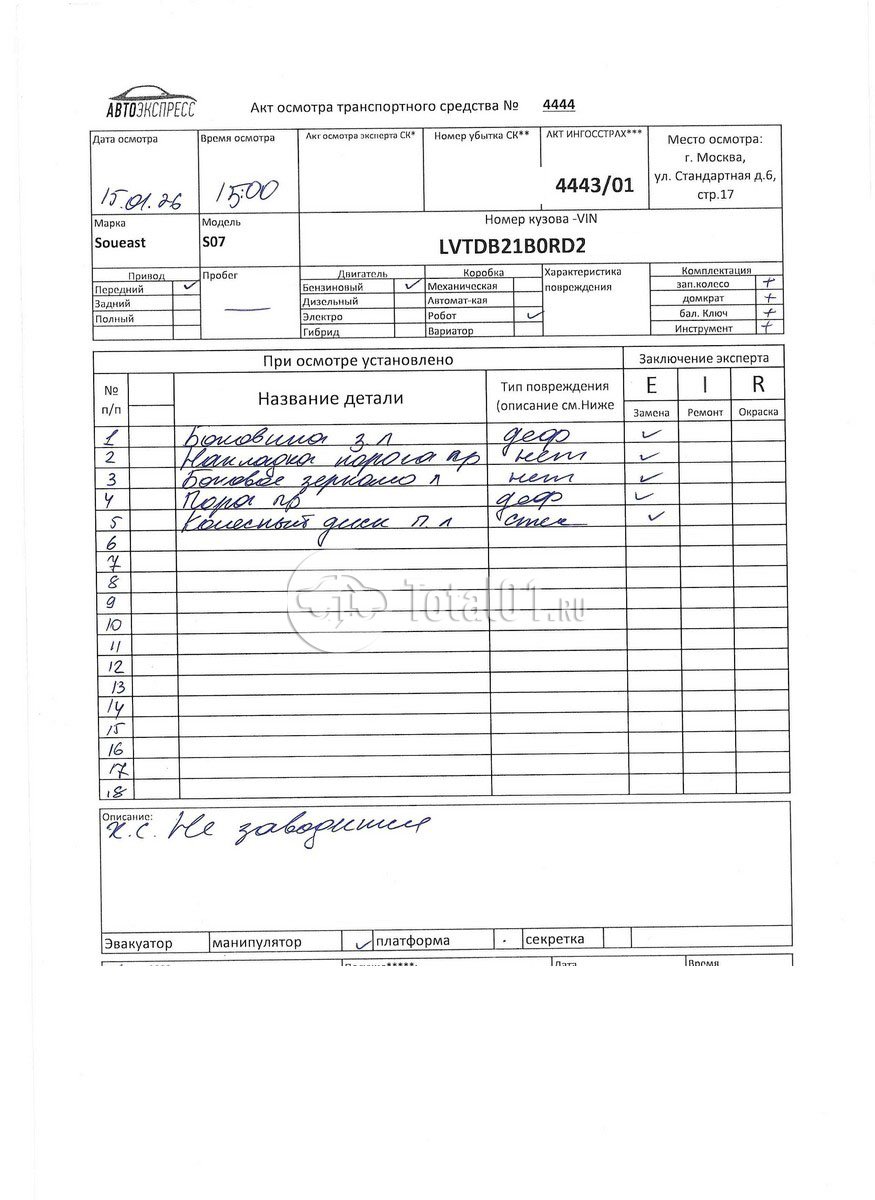 АВТОЭКСПРЕСС
Акт осмотра транспортного средства № 4444
Дата осмотра
15.01.26
Время осмотра
15:00
Акт осмотра эксперта СК*
Номер убытка СК**
АКТ ИНГОССТРАХ***
4443/01
Место осмотра:
г. Москва,
ул. Стандартная д.6,
стр.17
Марка
Soueast
Модель
S07
Номер кузова -VIN
LVTDB21B0RD2
Привод
Передний ✓
Задний
Полный
Пробег
—
Двигатель
Бензиновый ✓
Дизельный
Электро
Гибрид
Коробка
Механическая
Автомат-кая
Робот ✓
Вариатор
Характеристика
повреждения
Комплектация
зап.колесо +
домкрат +
бал. Ключ +
Инструмент +
При осмотре установлено
Заключение эксперта
№
п/п
Название детали
Тип повреждения
(описание см.Ниже
E I R
Замена Ремонт Окраска
1 Боковина з.л деф ✓
2 Накладка порога пр нет ✓
3 Боковое зеркало л нет ✓
4 пр деф ✓
5 Колесный диск п.л ✓
6
7
8
9
10
11
12
13
14
15
16
17
18
Total01.RU
Описание:
х.с. Не заводится
Эвакуатор манипулятор ✓ платформа . секретка
Дата
Время